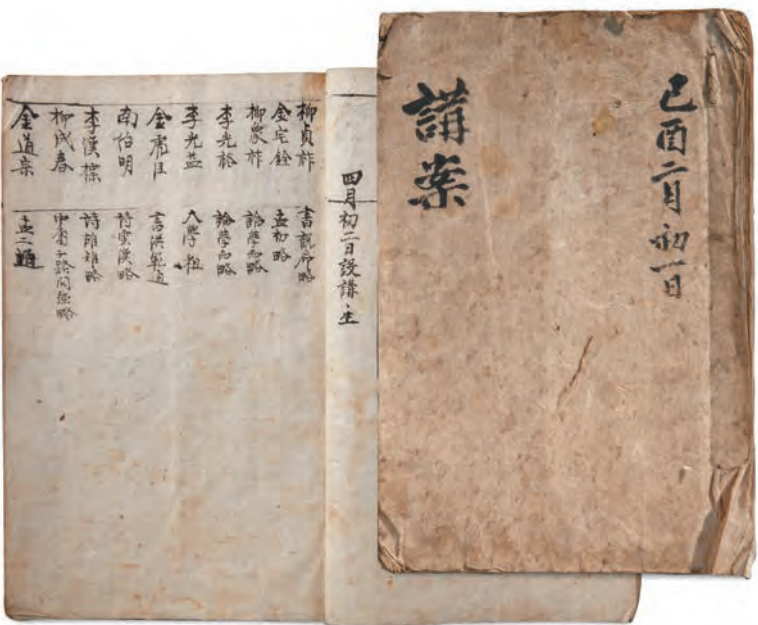 己酉二月初一日
講案
四月初二日設講 生
柳貞祚 書說命略
金宅銓 孟初略
柳祚 論學而略
李光 論學而略
李光益 大學粗
金 書洪範通
南伯明 詩雲漢略
李漢標 詩略
柳成春 中庸子路問強略
金道 孟二通